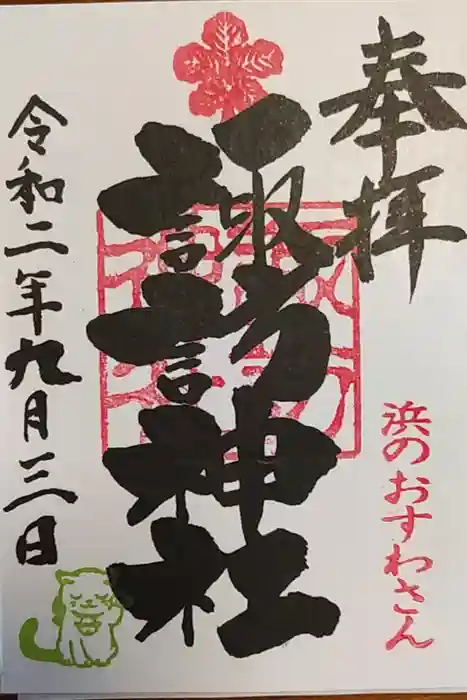 奉拝
諏訪神社
令和二年九月三日
浜のおすわさん